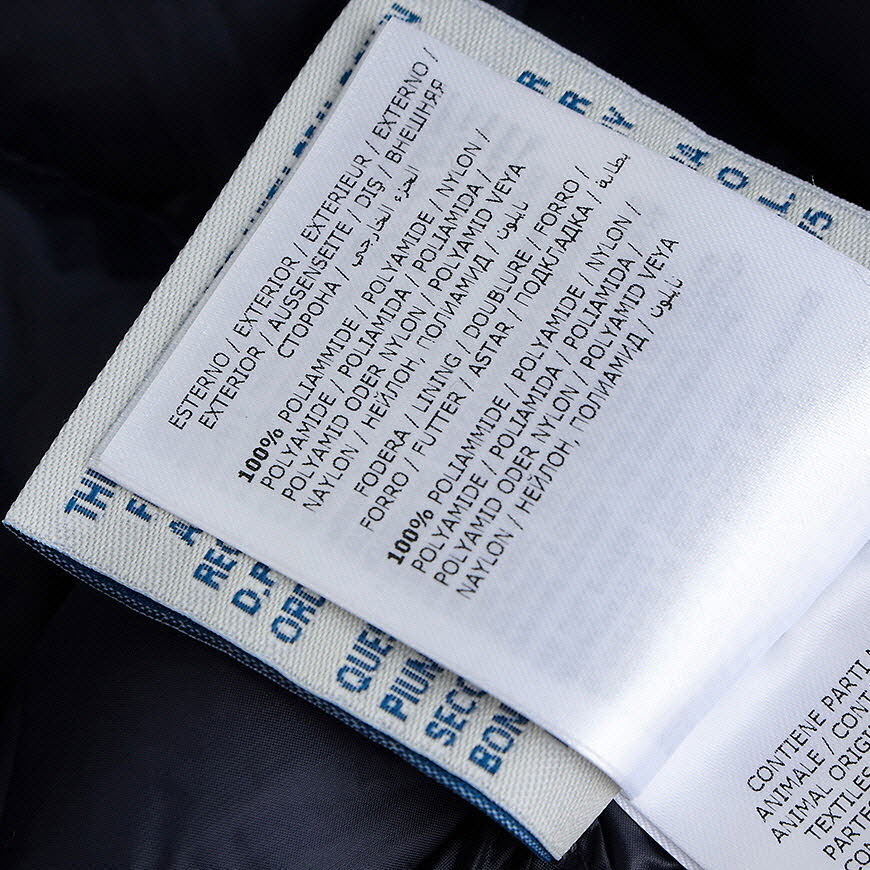 ESTERNO / EXTERIOR / EXTERIEUR / EXTERNO /
EXTERIOR / AUSSENSEITE / DIŞ / ВНЕШНЯЯ
СТОРОНА / الجزء الخارجي
100% POLIAMMIDE / POLYAMIDE / NYLON /
POLYAMIDE / POLIAMIDA / POLIAMIDA /
POLYAMID ODER NYLON / POLYAMID VEYA
NAYLON / НЕЙЛОН, ПОЛИАМИД / نايلون
FODERA / LINING / DOUBLURE / FORRO /
FORRO / FUTTER / ASTAR / ПОДКЛАДКА / بطانة
100% POLIAMMIDE / POLYAMIDE / NYLON /
POLYAMIDE / POLIAMIDA / POLIAMIDA /
POLYAMID ODER NYLON / POLYAMID VEYA
NAYLON / НЕЙЛОН, ПОЛИАМИД / نايلون
CONTIENE PARTI
ANIMALE / CONT
ANIMAL ORIGI
TEXTILES
PARTES
CON
THI
F
A
RE
D.P
ORD
QUE
PIUM
SECO
BON